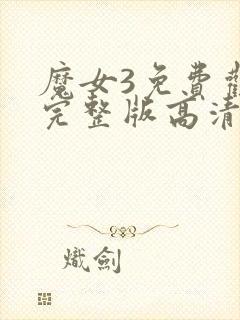 魔女3免費
完整版高清
熾劍